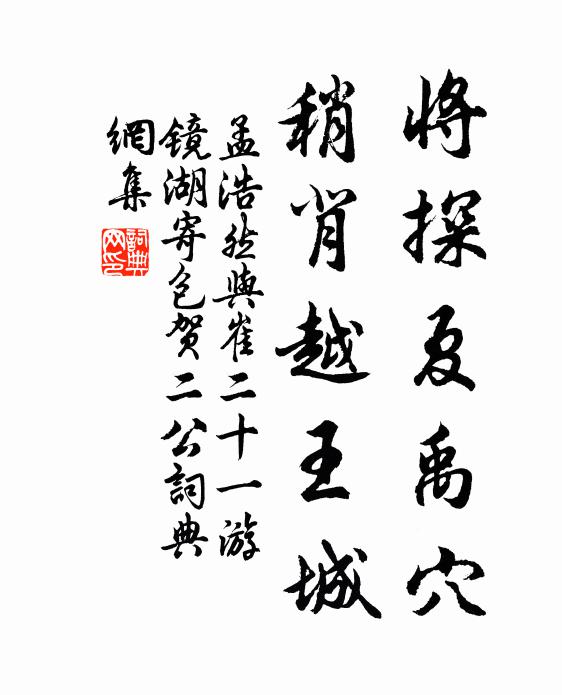 将探夏禹穴
稍背越王城
孟浩然與崔二十一游
镜湖寄包贺二公詞典
網集
詞典網印